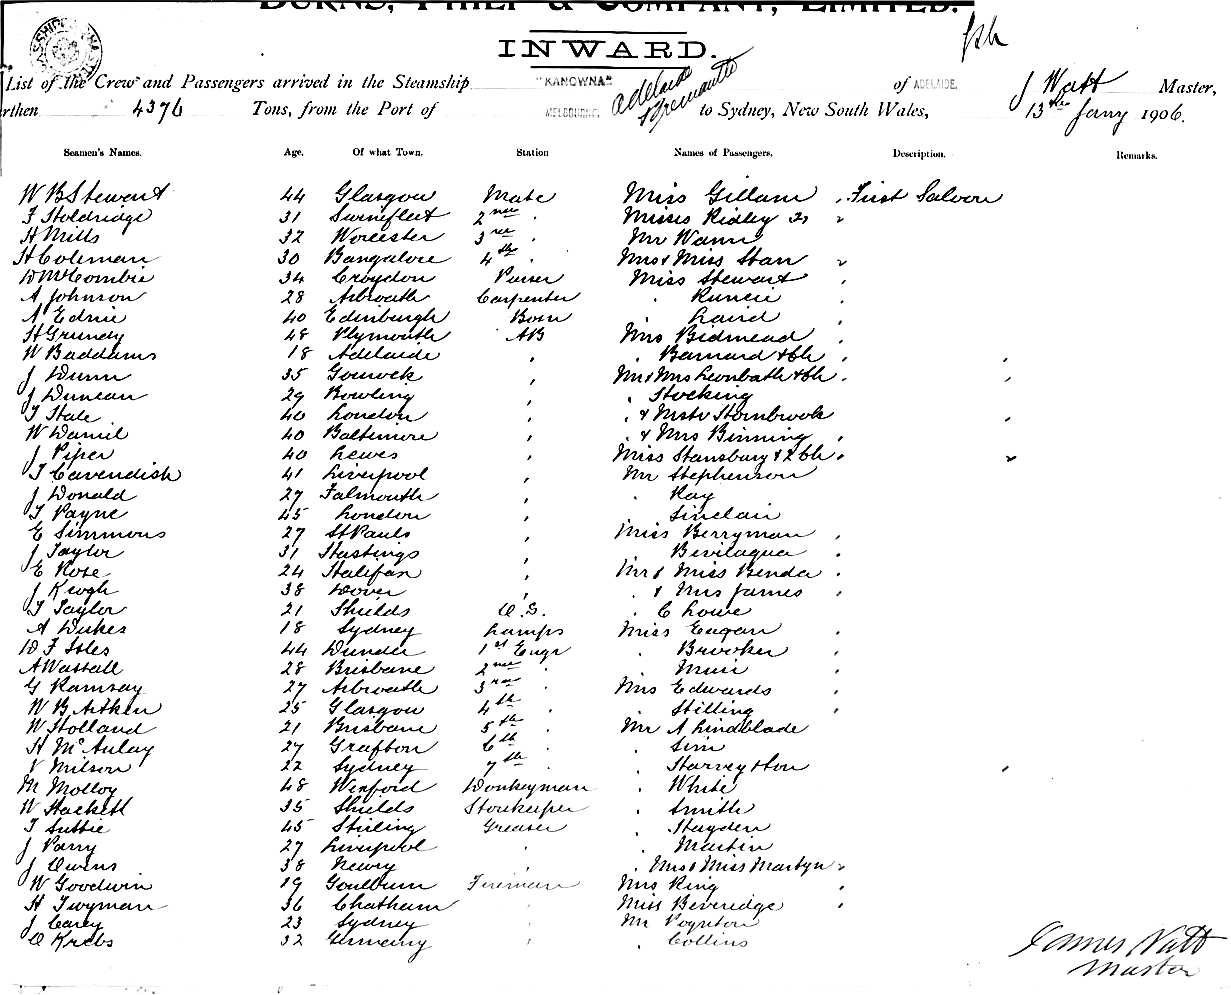 BURNS, PHILP & COMPANY, LIMITED.
INWARD.
List of the Crew and Passengers arrived in the Steamship "KANOWNA" of ADELAIDE. J Watt Master,
rthen 4376 Tons, from the Port of MELBOURNE. Adelaide Fremantle to Sydney, New South Wales, 13th Jany 1906.
Seamen's Names. Age. Of what Town. Station Names of Passengers. Description. Remarks.
W B Stewart 44 Glasgow Mate Miss Gillam First Saloon
F Holdridge 31 Swinefleet 2nd Misses Ridley 2
H Mills 32 Worcester 3rd Mr Wann
H Coleman 30 Bangalore 4th Mrs & Miss Starr
D McCombie 34 Croydon Purser Miss Stewart
A Johnson 28 Arbroath Carpenter Runcie
A Ednie 40 Edinburgh Bosn Laird
H Grundy 48 Plymouth AB Mrs Bidmead
W Baddams 18 Adelaide Barnard & ch
J Dunn 35 Gourock Mr & Mrs Leonbath & ch
J Duncan 29 Bowling Stocking
T Hale 40 London & Mrs Hornbrook
W Daniel 40 Baltimore & Mrs Binning
J Piper 40 Lewes Miss Stansbury & 2 ch
T Cavendish 41 Liverpool Mr Stephenson
J Donald 27 Falmouth Kay
T Payne 45 London Sinclair
E Simmons 27 St Pauls Miss Berryman
J Taylor 31 Hastings Bevilaqua
E Rose 24 Halifax Mr & Miss Benda
J Keogh 38 Dover & Mrs James
T Taylor 21 Shields O.S. C Lowe
A Dukes 18 Sydney Lamps Miss Eagan
D F Isles 44 Dundee 1st Engr Brooker
A Wastall 28 Brisbane 2nd Muir
G Ramsay 27 Arbroath 3rd Mrs Edwards
W B Aitken 25 Glasgow 4th Stilling
W Holland 21 Brisbane 5th Mr A Lindblade
H McAulay 27 Grafton 6th Sim
V Milson 22 Sydney 7th Harvey & son
M Molloy 48 Wexford Donkeyman White
W Hackett 35 Shields Storekeeper Smith
T Suttie 45 Stirling Greaser Hayden
J Parry 27 Liverpool Martin
J Owens 38 Newry Mrs & Miss Martyn
W Goodwin 19 Goulburn Fireman Mrs King
H Twyman 36 Chatham Miss Beveridge
J Carey 23 Sydney Mr Poynton
O Krebs 32 Germany Collins
James Watt
Master